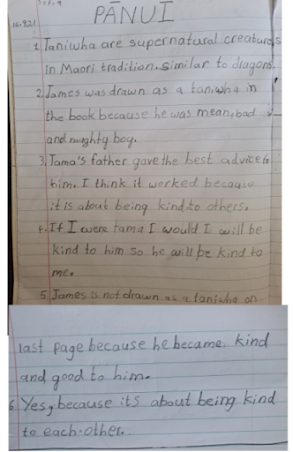 PĀNUI
1. Taniwha are supernatural creatures
in Maori tradition. similar to dragons.
2. James was drawn as a taniwha in
the book because he was mean, bad
and naughty boy.
3. Tama's father gave the best advice to
him. I think it worked because
it is about being kind to others.
4. If I were tama I would I will be
kind to him so he will be kind to
me.
5. James is not drawn as a taniwha on
last page because he became kind
and good to him.
6 Yes, because its about being kind
to each-other.